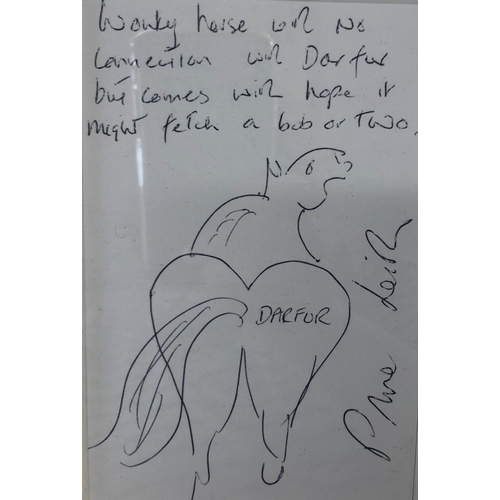 Wonky horse with no
connection with Darfur
but comes with hope it
might fetch a bob or two.
DARFUR
Prue Leith